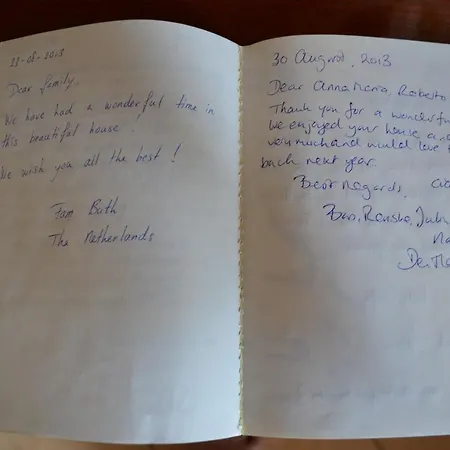 28-08-2013
Dear family,
We have had a wonderful time in
this beautiful house!
We wish you all the best!
Fam Buth
The Netherlands
30 August, 2013
Dear Annamaria, Roberto
Thank you for a wonderfu
We enjoyed your house an
very much and would love
back next year.
Best Regards,
Bas, Renske, July